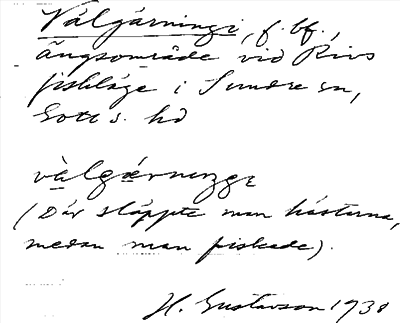 Valgärningi, f. bf.,
ängsområde vid Rivs
fiskläge i Sundre sn,
Gotl. s. hd
vàlgærnıŋgı
(Där släppte man hästarna,
medan man fiskade).
H. Gustavson 1938